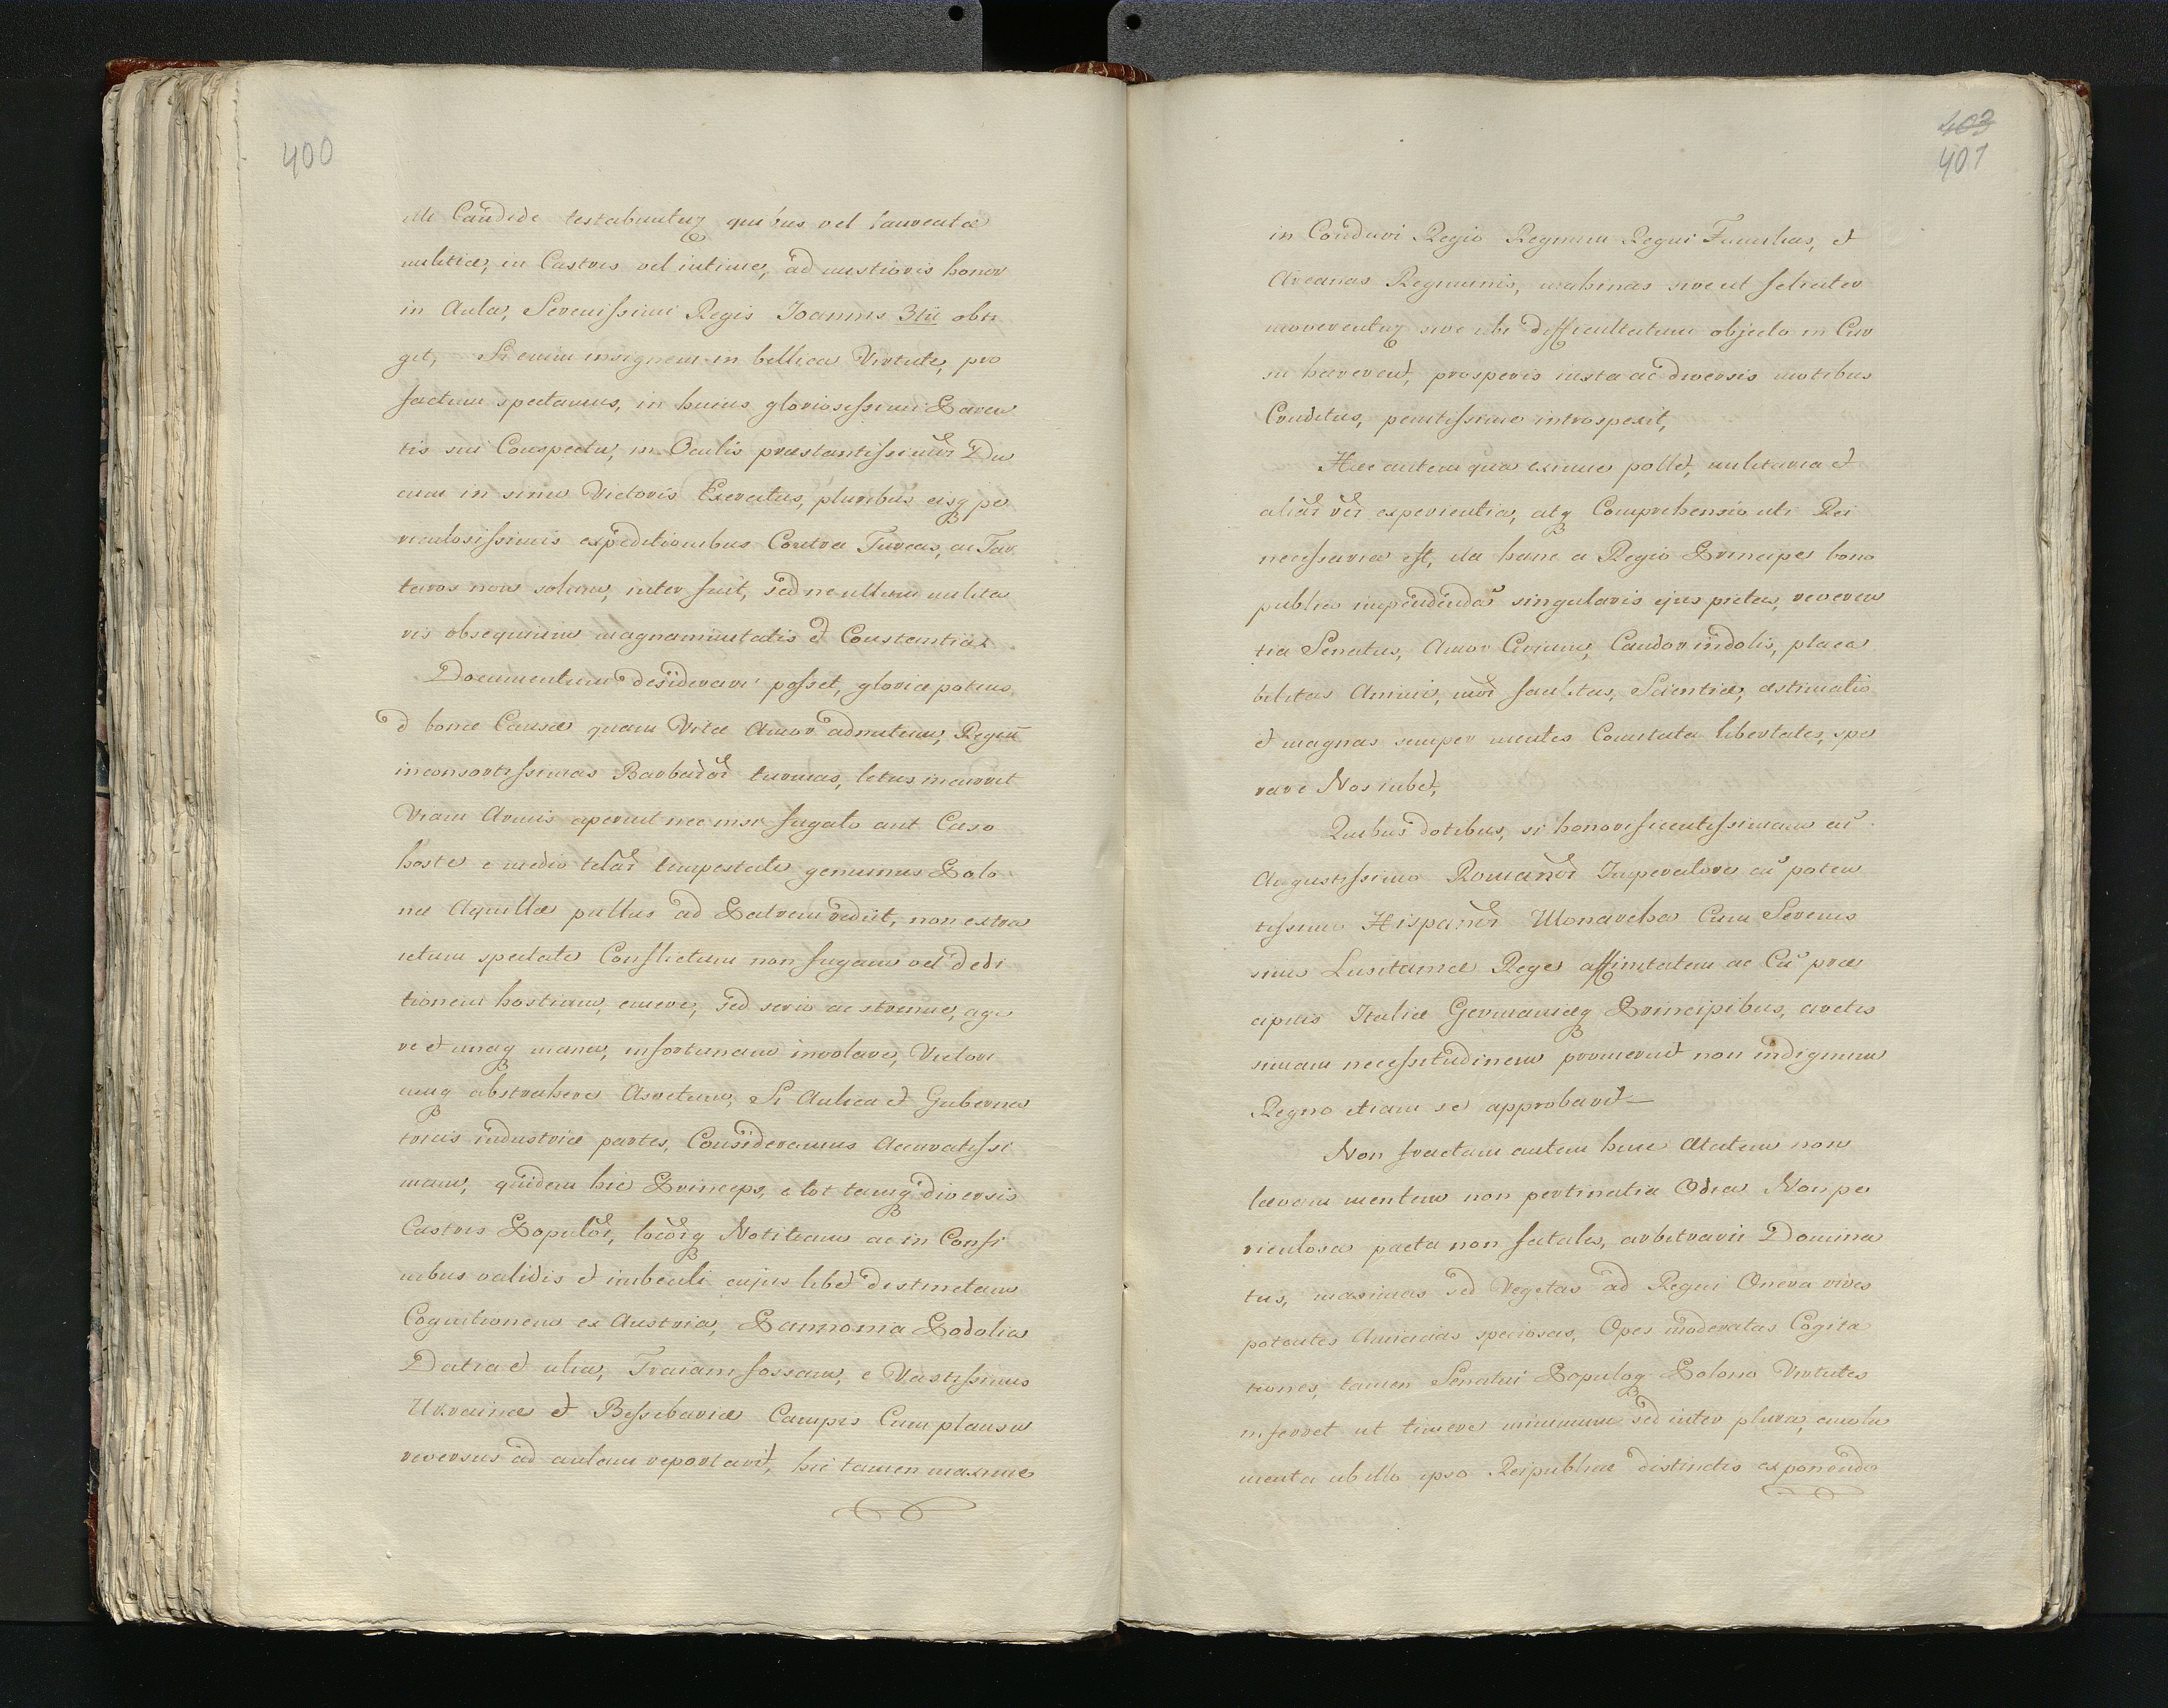 400
illi Candide testabuntur quibus vel laureatæ
militiæ, in Castris vel intimæ, ad nustioris honor
in Aula, Serenissimi Regis Joannis 3tii obti
git, Si enim insignem in bellica Virtute, pro
fectum spectamus, in huius gloriosissimi Paren
tis sui Conspectu, in Oculis præstantissimor Du
cum in sinu Victoris Exercitus, pluribus eisq pe
riculosissimis expeditionibus Contra Turcas, ac Tar
taros non solum, inter fuit, sed ne ullum milita
ris obsequium magnanimitatis et Constantiæ
Documentum desiderari posset, gloriæ potius
et bonæ Causæ quam Vitæ Amor admittens, Regiũ
inconsortissimas Barbaror turmas, letus incurrit
Viam Armis aperuit nec nisi fugato aut Cæso
hoste e medio telar tempestate genuinus Polo
næ Aquillæ pullus ad Patrem rediit, non extra
ictum spectate Conflictum non fugam vel dedi
tionem hostium, emere, sed serio ac strenue, age
re et unaq manu, infortunam involare, Victori
amq abstrahere Asvetum, Si Aulica et Guberna
tricis industriæ partes, Consideramus Accuratissi
mam, quidem hic Princeps, e tot tamq diversis
Castris Popular, locorq Notitiam ac in Consi
mbus validis et imbecili cujus libet distinctam
Cognitionem ex Austria, Pannonia Podolia
Datia et alia, Traiani fossam, e Vastissimis
Ukrainæ et Bessibariæ Campis Cum plausu
reversus ad aulam reportavit, hic tamen maxime
403
401
in Conduvi Regio Regnum Regni Famulias, et
Arcanas Regminis, mahinas sive ut feliciter
moverentur sive ubi difficultatum objecto in Cur
su hærerent, prosperis iusta ac diversis motibus
Eruditus, penitissime introspexit,
Hæc autem qua eximie pollet, militaria et
aliar rer experientia, atq Comprehensio uti Rei
necessaria est, ita hanc a Regio Principe bono
publico impendendã singularis ejus pietas, reveren
tia Senatus, Amor Civium, Candor indolis, placa
bilitas Animi, mor sanctitas, Scientiæ, æstimatio
et magnas semper mentes Comitata libertates, spe
rare Nos iubet,
Quibus dotibus, si honorificentissimam cũ
Augustissimo Romanor Imperatore cũ poten
tissimo Hispanior Monarcha Cum Serenis
simo Lusitaniæ Rege affinitatem ac Cũ præ
cipuis Italiæ Germaniæq Principibus, arctis
simam necessitudinem promeruit non indignum
Regno etiam se approbavit
Non fractam autem hinc Ætatem non
lævam mentem non pertinatia Odia Non pe
riculosa pacta non fatales, arbitrarii Domina
tus, maximas sed Vegetas ad Regni Onera vires
potentes Amicicias speciosas, Opes moderatas Cogita
tiones, tamen Senatui Populoq Polono Virtutes
inserret ut timere minimum sed inter plura, emolu
menta ab illo ipso Reipublicæ distinctis exponendo